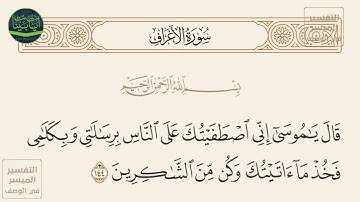 التفسير
الميسر
سُورَةُ الأَعْرَافِ
بِسْمِ اللَّهِ الرَّحْمَٰنِ الرَّحِيمِ
قَالَ يَٰمُوسَىٰٓ إِنِّي ٱصْطَفَيْتُكَ عَلَى ٱلنَّاسِ بِرِسَٰلَٰتِي وَبِكَلَٰمِي
فَخُذْ مَآ ءَاتَيْتُكَ وَكُن مِّنَ ٱلشَّٰكِرِينَ ١٤٤
التفسير
الميسر
في الوصف